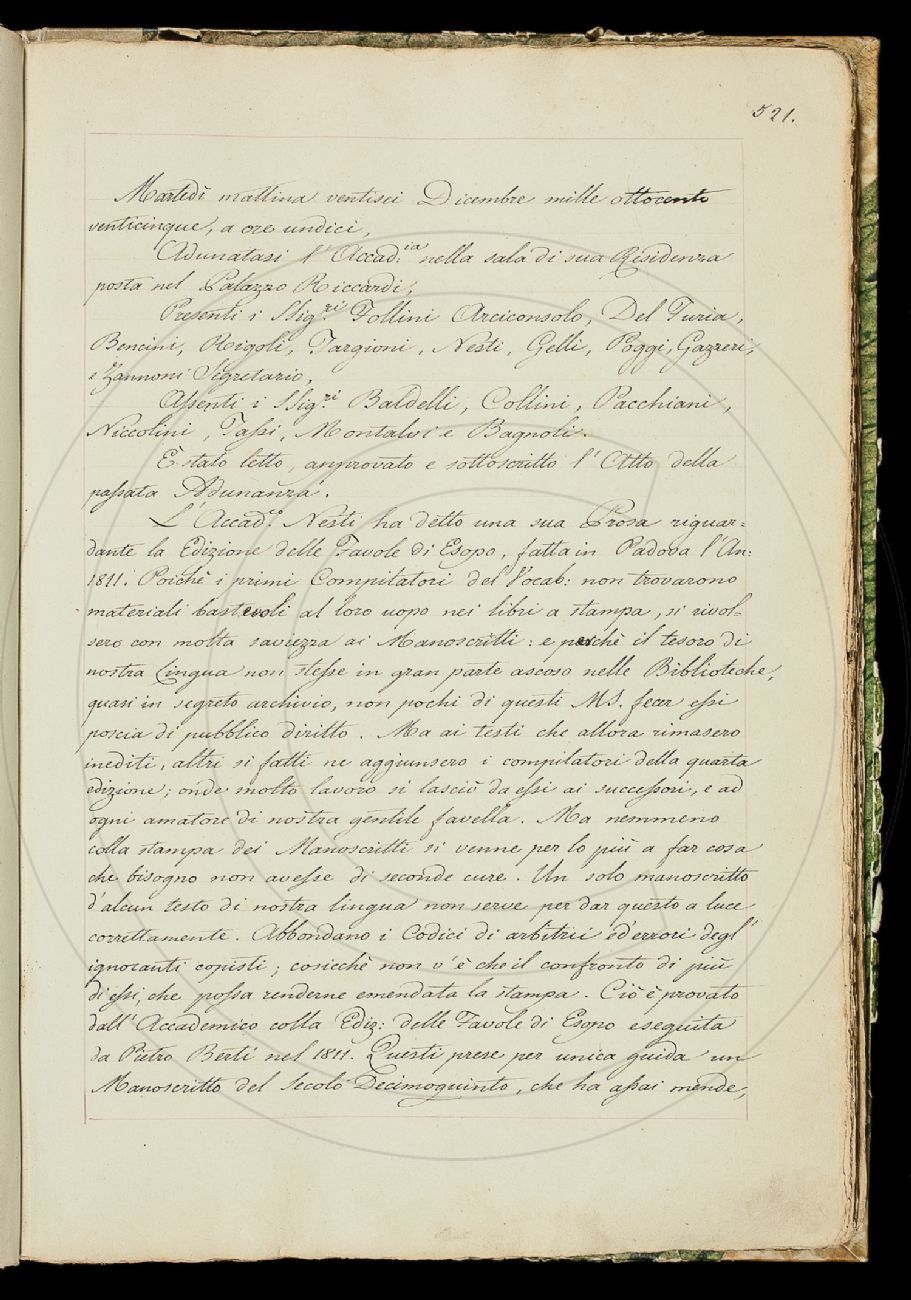 521.
Martedì mattina ventisei Dicembre mille ottocento
venticinque, a ore undici,
Adunatasi l'Accad:ia nella sala di sua Residenza
posta nel Palazzo Riccardi,
Presenti i SSig:ri Follini Arciconsolo, Del Furia,
Bencini, Rigoli, Targioni, Nesti, Gelli, Poggi, Gazzeri,
e Zannoni Segretario,
Assenti i SSig:ri Baldelli, Collini, Pacchiani,
Niccolini, Tassi, Montalvi e Bagnoli.
È stato letto, approvato e sottoscritto l'Atto della
passata Adunanza.
L'Accad:o Nesti ha detto una sua Prosa riguar=
dante la Edizione delle Favole di Esopo, fatta in Padova l'An:
1811. Poichè i primi Compilatori del Vocab: non trovarono
materiali bastevoli al loro uopo nei libri a stampa, si rivol=
sero con molta saviezza ai Manoscritti: e perchè il tesoro di
nostra Lingua non stesse in gran parte ascoso nelle Biblioteche,
quasi in segreto archivio, non pochi di questi MS. fecer essi
poscia di pubblico diritto. Ma ai testi che allora rimasero
inediti, altri sì fatti ne aggiunsero i compilatori della quarta
edizione; onde molto lavoro si lasciò da essi ai successori, e ad
ogni amatore di nostra gentile favella. Ma nemmeno
colla stampa dei Manoscritti si venne per lo più a far cosa
che bisogno non avesse di seconde cure. Un solo manoscritto
d'alcun testo di nostra lingua non serve per dar questo a luce
correttamente. Abbondano i Codici di arbitrii ed errori degl'
ignoranti copisti; cosicchè non v'è che il confronto di più
di essi, che possa renderne emendata la stampa. Ciò è provato
dall'Accademico colla Ediz: delle Favole di Esopo eseguita
da Pietro Berti nel 1811. Questi prese per unica guida un
Manoscritto del Secolo Decimoquinto, che ha assai mende,